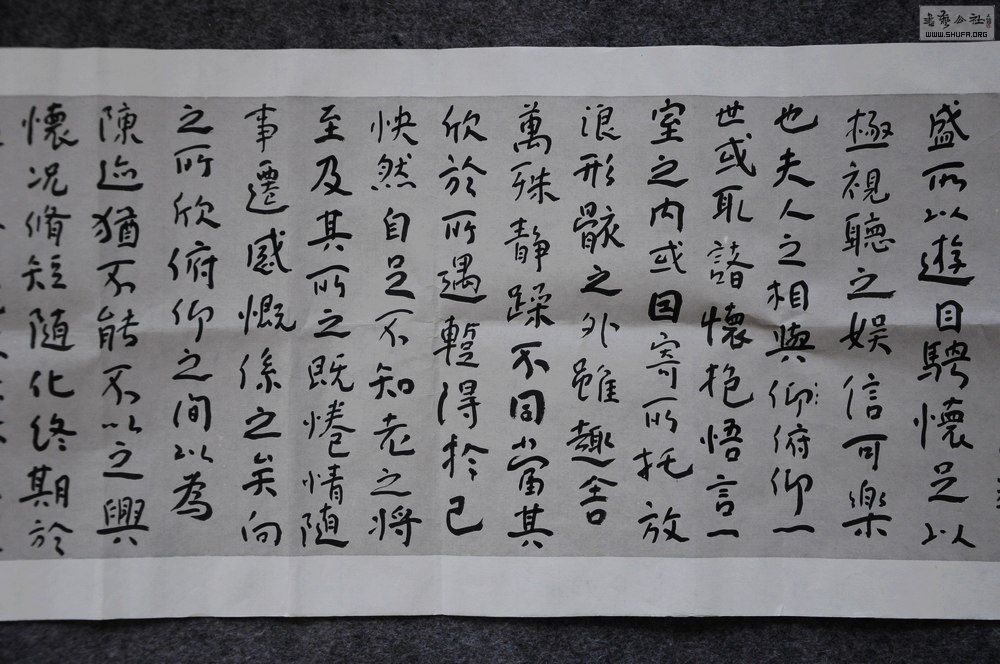 盛所以遊目騁懷足以
極視聽之娛信可樂
也夫人之相與仰俯仰一
世或取諸懷抱悟言一
室之内或因寄所托放
浪形骸之外雖趣舍
萬殊静躁不同當其
欣於所遇蹔得於己
快然自足不知老之將
至及其所之既惓情隨
事遷感慨係之矣向
之所欣俯仰之間以為
陳迹猶不能不以之興
懷况脩短隨化終期於
書藝公社
WWW.SHUFA.ORG